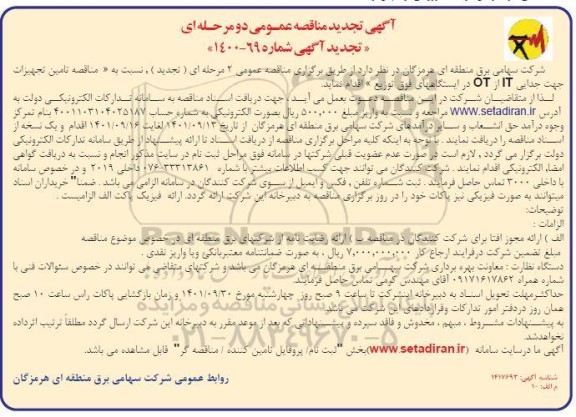 آگهی تجدید مناقصه عمومی دو مرحله ای
« تجدید آگهی شماره ۶۹-۱۴۰۰»
شرکت سهامی برق منطقه ای هرمزگان در نظر دارد از طریق برگزاری مناقصه عمومی ۲ مرحله ای ( تجدید ) ، نسبت به « مناقصه تامین تجهیزات
جهت جدایی IT از OT در ایستگاههای فوق توزیع » اقدام نماید.
لذا از متقاضیان شرکت در این مناقصه دعوت بعمل می آید جهت دریافت اسناد مناقصه به سامانه تدارکات الکترونیکی دولت به
آدرس www.setadiran.ir مراجعه و نسبت به واریز مبلغ ۵۰۰,۰۰۰ ریال بصورت الکترونیکی به شماره حساب ۴۰۰۱۱۰۳۱۰۴۰۲۵۱۸۷ بنام تمرکز
وجوه درآمد حق انشعاب و سایر درآمدهای شرکت سهامی برق منطقه ای هرمزگان از تاریخ ۱۴۰۰/۰۹/۱۳ لغایت ۱۴۰۱/۰۹/۱۶ اقدام و یک نسخه از
اسناد مناقصه را دریافت نمایند . با توجه به اینکه کلیه مراحل برگزاری مناقصه از دریافت اسناد تا ارائه پیشنهاد از طریق سامانه تدارکات الکترونیکی
دولت برگزار می گردد ، لازم است در صورت عدم عضویت قبلی شرکتها در سامانه فوق مراحل ثبت نام در سایت مذکور انجام و نسبت به دریافت گواهی
امضاء الکترونیکی اقدام نمایند . شرکت کنندگان می توانند جهت کسب اطلاعات بیشتر با شماره ۳۳۳۱۳۸۶۱-۰۷۶ داخلی ۲۰۱۹ و در خصوص سامانه
با داخلی ۳۰۰۰ تماس حاصل فرمایند . ثبت شماره تلفن ، فکس و ایمیل از سوی شرکت کنندگان در سامانه الزامی می باشد . ضمنا" خریداران اسناد
میتوانند به صورت فیزیکی نیز پاکات خود را در روز برگزاری مناقصه به دبیرخانه این شرکت ارائه گردد. ارائه فیزیک پاکت الف الزامیست .
توضیحات:
الزامات :
الف ) ارائه مجوز افتا برای شرکت کنندگان در مناقصه ب ) ارائه رضایت نامه از شرکتهای برق منطقه ای در خصوص موضوع مناقصه
مبلغ تضمین شرکت در فرایند ارجاع کار ۷,۰۰۰,۰۰۰,۰۰۰ ریال ، به صورت ضمانتنامه معتبر بانکی ویا واریز نقدی .
دستگاه نظارت : معاونت بهره برداری شرکت سهامی برق منطقه ای هرمزگان می باشد و شرکتهای متقاضی می توانند در خصوص سئوالات فنی با
شماره همراه ۰۹۱۷۱۶۱۷۸۶۲ آقای مهندس گرمی تماس حاصل فرمایند.
حداکثر مهلت تحویل اسناد به دبیرخانه اینشرکت تا ساعت ۹ صبح روز چهارشنبه مورخ ۱۴۰۱/۰۹/۳۰ و زمان بازگشایی پاکات راس ساعت ۱۰ صبح
همان روز در دفتر امور تدارکات و قراردادهای این شرکت می باشد.
به پیشنهادات مشروط ، مبهم ، مخدوش و فاقد سپرده و پیشنهاداتی که بعد از موعد مقرر به دبیرخانه این شرکت ارسال گردد مطلقا ترتیب اثر داده
نخواهد شد.
آگهی ما در سایت سامانه (www.setadiran.ir) بخش "ثبت نام/ پروفایل تامین کننده / مناقصه گر" قابل مشاهده می باشد.
روابط عمومی شرکت سهامی برق منطقه ای هرمزگان
شناسه آگهی: ۱۴۱۷۶۹۳
م الف : ۱۰
ParsNamadData
۰۲۱-۸۸۳۴۹۶۷۰-۵